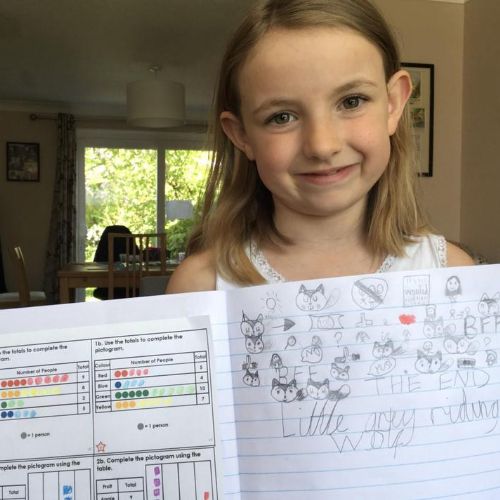 the totals to complete the
1b. Use the totals to complete the pictogram.
Number of People Total
Colour Number of People Total
Red 5
Blue 4
Green 10
Yellow 7
= 1 person
= 1 person
plete the pictogram using the
2b. Complete the pictogram using the table.
Total
Fruit Total
BFF
BFF THE END
Little grey riding
Wolf